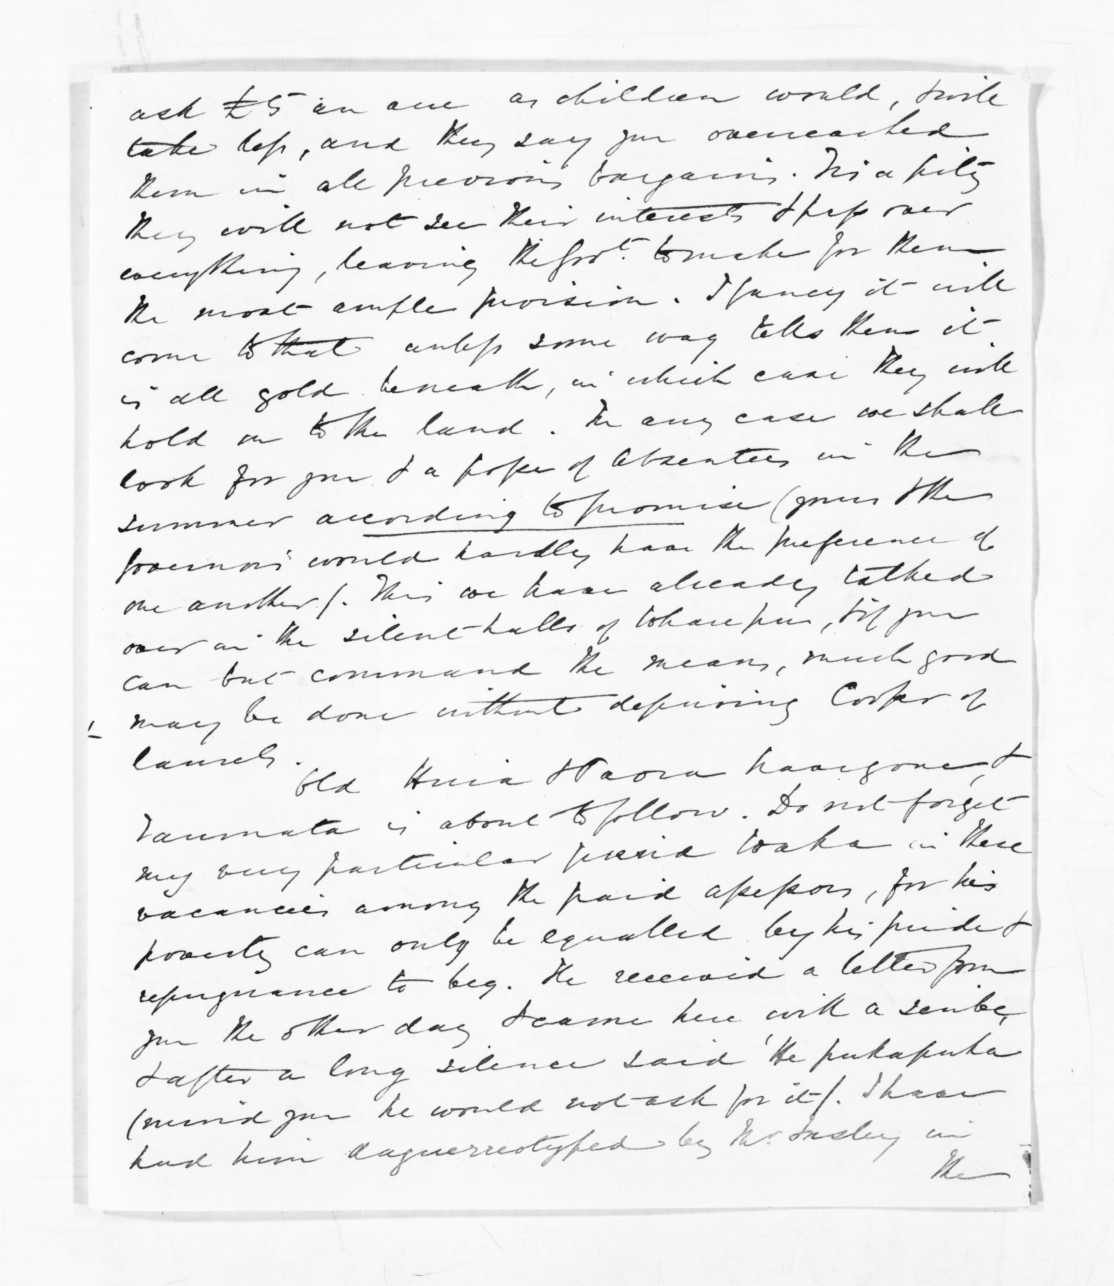 ask £5 an acre as children would, & will
take less, and they say you overreached
them in all previous bargains. Tis a pity
they will not see their interests & pass over
everything, leaving the Govt. to make for them
the most ample provision. I fancy it will
come to that unless some wag tells them it
is all gold beneath, in which case they will
hold on to the land. In any case we shall
look for you & a posse of absentees in the
summer according to promise (yours & the
Governors' would hardly have the preference of
one another). This we have already talked
over in the silent halls of Wharepuni, & if you
can but command the means, much good
may be done without depriving Cooper of
laurels.
Old Huia & Paora have gone, &
Taumata is about to follow. Do not forget
my very particular friend Waka in these
vacancies among the paid assessors, for his
poverty can only be equalled by his pride &
repugnance to beg. He received a letter from
you the other day & came here with a scribe,
& after a long silence said 'He pukapuka
(mind you he would not ask for it). I have
had him daguerreotyped by Mr. Insley in
the